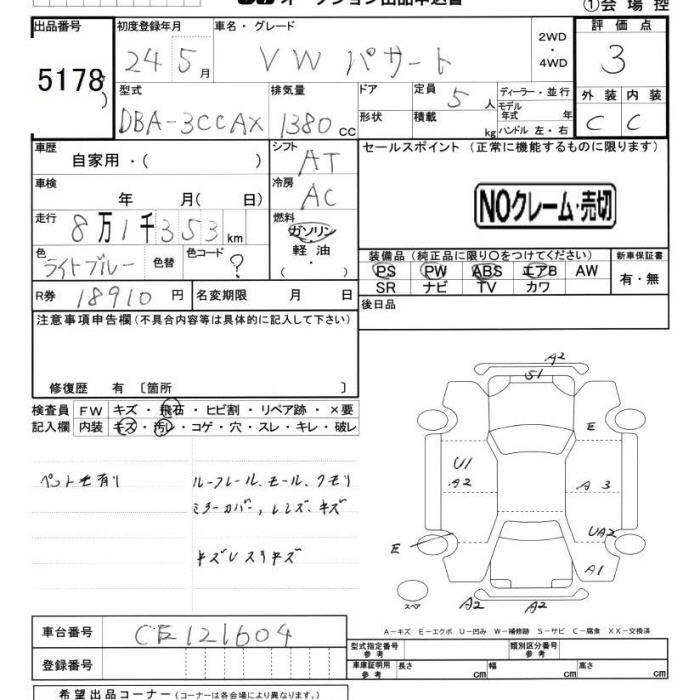 オークション出品申込書
①会場控
出品番号 初度登録年月 車名・グレード 2WD・4WD 評価点
5178 24 5月 VW パサート 3
型式 排気量 ドア 定員 5人 ディーラー・並行 外装 内装
DBA-3CCAX 1380cc 形状 積載 kg モデル年式 年 ハンドル 左・右 C C
車歴 シフト セールスポイント (正常に機能するものに限ります)
自家用・( ) AT
車検 冷房
年 月( 日) AC NOクレーム・売切
走行 燃料
8万1千353km ガソリン
色 色替 色コード 軽油 装備品 (純正品に限り○をつけてください) 新車保証書
ライトブルー ? ・( ) PS PW ABS エアB AW 有・無
R券 18910円 名変期限 月 日 SR ナビ TV カワ
注意事項申告欄(不具合内容等は具体的に記入して下さい) 後日品
修復歴 有 〔箇所 〕
検査員 FW キズ・飛石・ヒビ割・リペア跡・×要
記入欄 内装 キズ・汚レ・コゲ・穴・スレ・キレ・破レ
ルーフレール、モール、クモリ
ミラーカバー、レンズ、キズ
キズUスリキズ
A2
S1
E
U1
A2
A 3
UA2
E
A1
スペア A2 A2
A-キズ E-エクボ U-凹み W-補修跡 S-サビ C-腐食 XX-交換済
車台番号 CE121604 型式指定番号 参考 類別区分番号 参考
登録番号 車庫証明用 参考 長さ cm 幅 cm 高さ cm
希望出品コーナー (コーナーは各会場により異なります。)